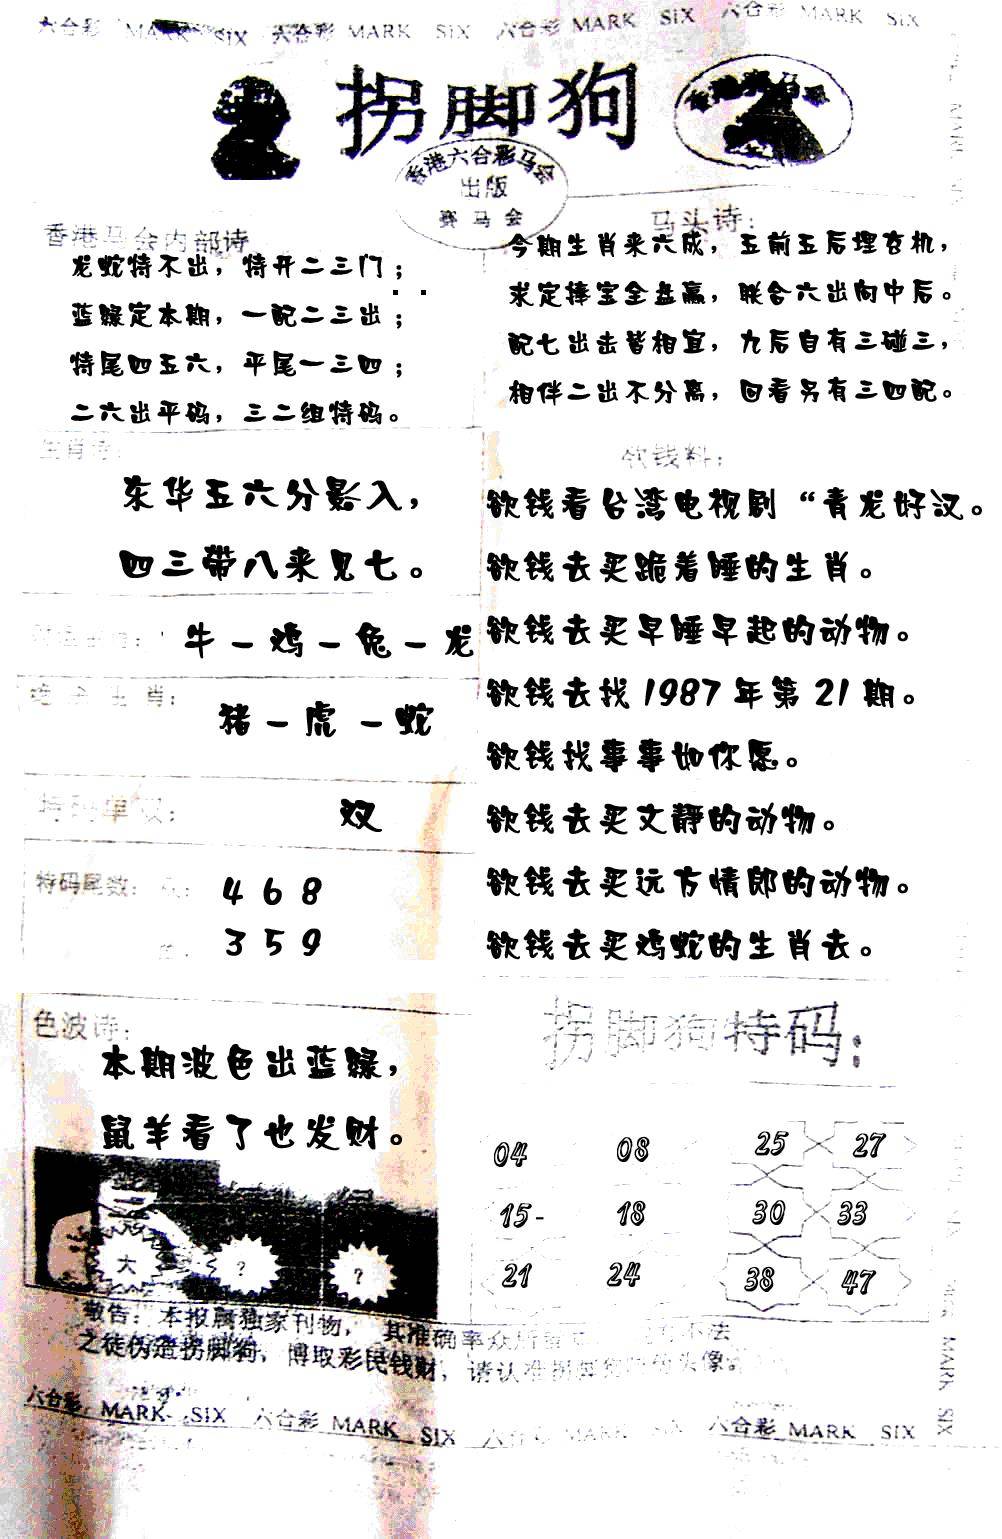 六合彩 MARK SIX 六合彩 MARK SIX 六合彩 MARK SIX 六合彩 MARK SIX
拐脚狗
香港六合彩马会
出版
赛马会
香港马会内部诗
龙蛇特不出，特开二三门；
蓝绿定本期，一配二三出；
特尾四五六，平尾一三四；
二六出平码，三二组特码。
马头诗：
今期生肖来六成，五前五后埋玄机，
求定捧宝全盘赢，联合六出向中后。
配七出击皆相宜，九后自有三碰三，
相伴二出不分离，回看另有三四配。
生肖诗：
东华五六分影入，
四三带八来见七。
牛－鸡－兔－龙
生肖：
猪－虎－蛇
特码单双：
双
特码尾数：
4 6 8
3 5 9
欲钱料：
欲钱看台湾电视剧“青龙好汉。
欲钱去买跪着睡的生肖。
欲钱去买早睡早起的动物。
欲钱去找1987年第21期。
欲钱找事事如你愿。
欲钱去买文静的动物。
欲钱去买远方情郎的动物。
欲钱去买鸡蛇的生肖去。
色波诗：
本期波色出蓝绿，
鼠羊看了也发财。
大 ? ?
拐脚狗特码：
04 08 25 27
15- 18 30 33
21 24 38 47
敬告：本报属独家刊物，其准确率众所 不法
之徒伪造拐脚狗，博取彩民钱财，请认准拐脚狗 头像
六合彩 MARK SIX 六合彩 MARK SIX 六合彩 MARK SIX 六合彩 MARK SIX
MARK SIX